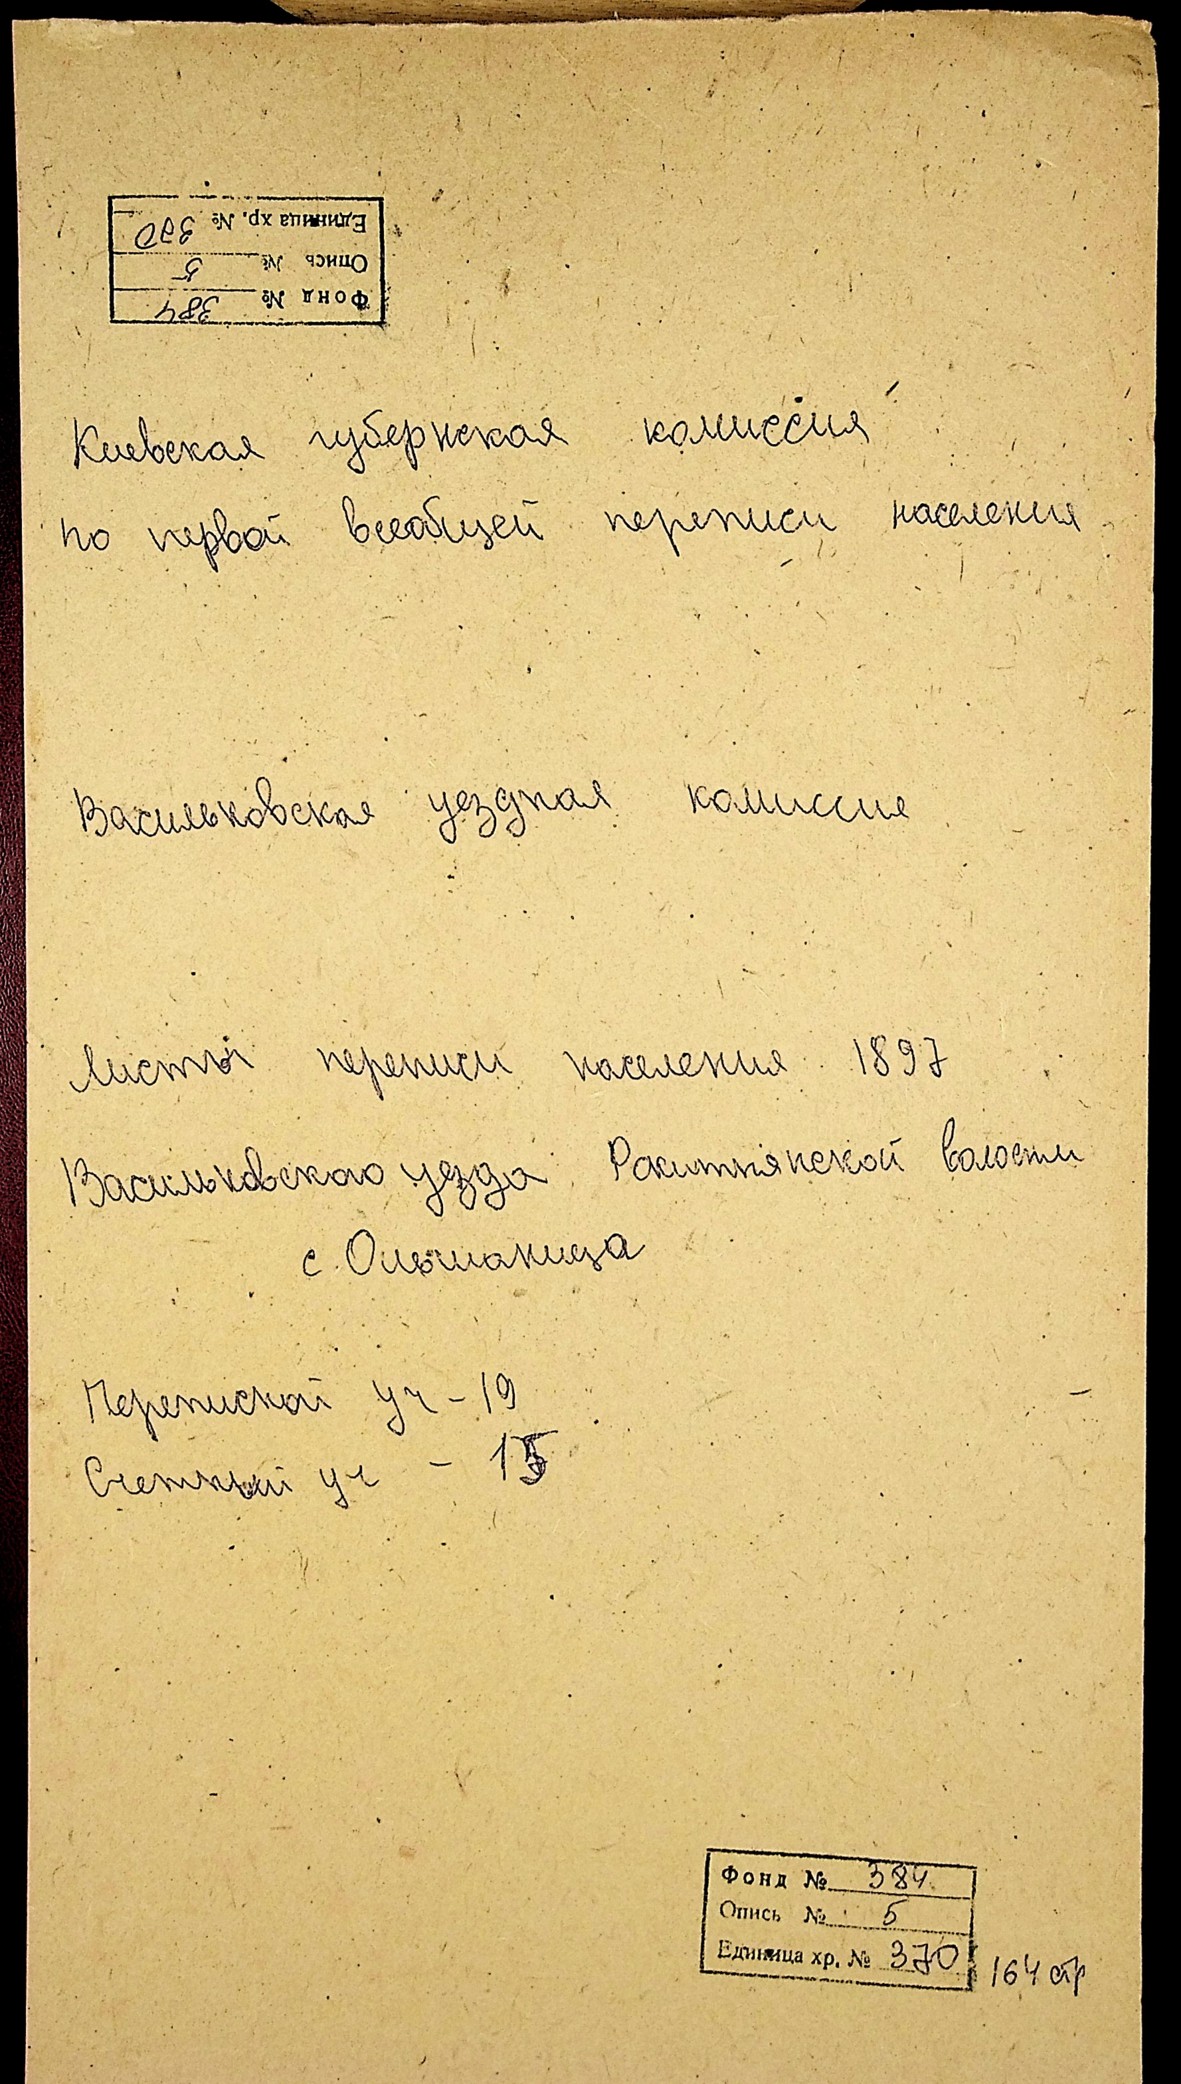 Единица хр. № 370
Опись № 5
Фонд № 384
Киевская губернская комиссия
по первой всеобщей переписи населения
Васильковская уездная комиссия
Листы переписи населения 1897
Васильковского уезда Ракитнянской волости
с. Ольшаница
Переписной уч - 19
Счетный уч - 15
Фонд № 384
Опись № 5
Единица хр. № 370 164 стр